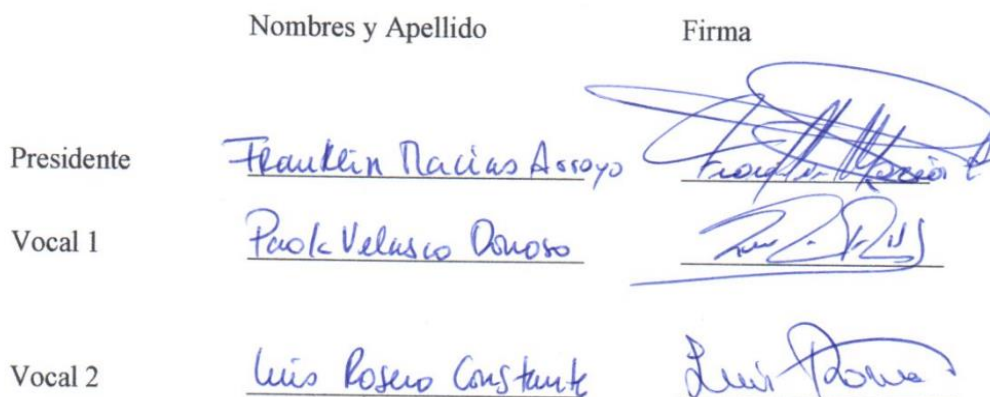 Nombres y Apellido Firma
Presidente Franklin Macias Arroyo
Vocal 1 Paola Velasco Donoso
Vocal 2 Luis Rosero Constante Luis